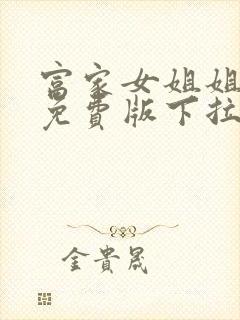 富家女姐姐
免費版下拉
金貴晟